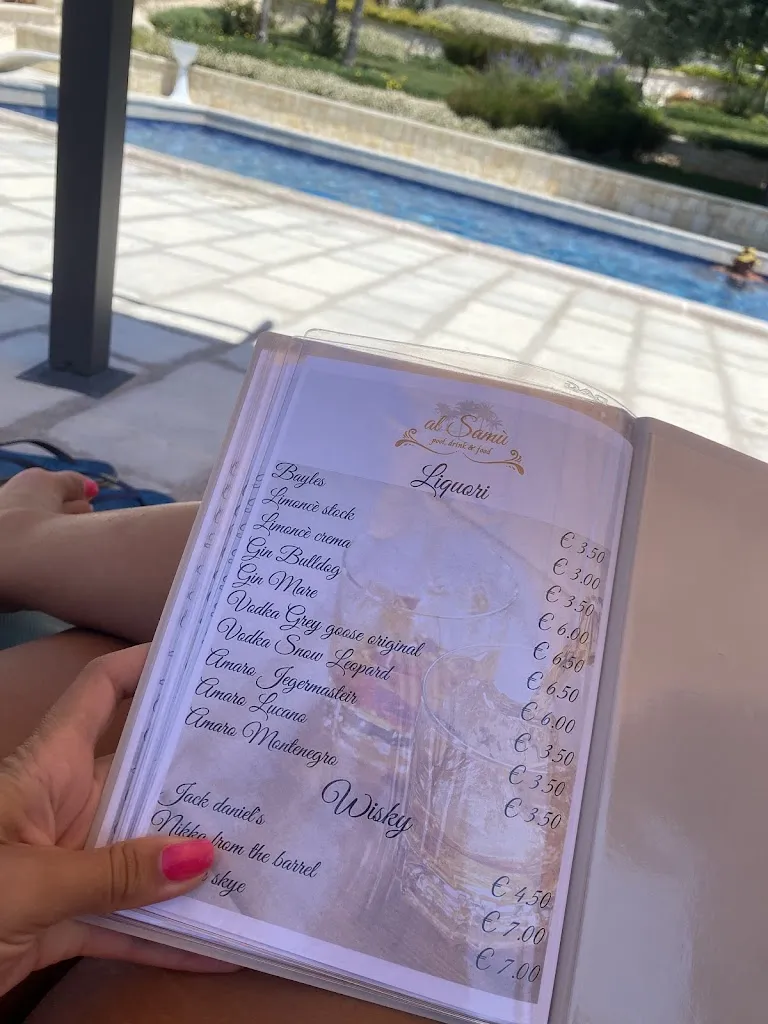 al Samù
pool, drink & food
Liquori
Bayles € 3.50
Limoncè stock € 3.00
Limoncè crema € 3.50
Gin Bulldog € 6.00
Gin Mare € 6.50
Vodka Grey goose original € 6.50
Vodka Snow Leopard € 6.00
Amaro Jegermasteir € 3.50
Amaro Lucano € 3.50
Amaro Montenegro € 3.50
Wisky
Jack daniel's € 4.50
Nikka from the barrel € 7.00
skye € 7.00